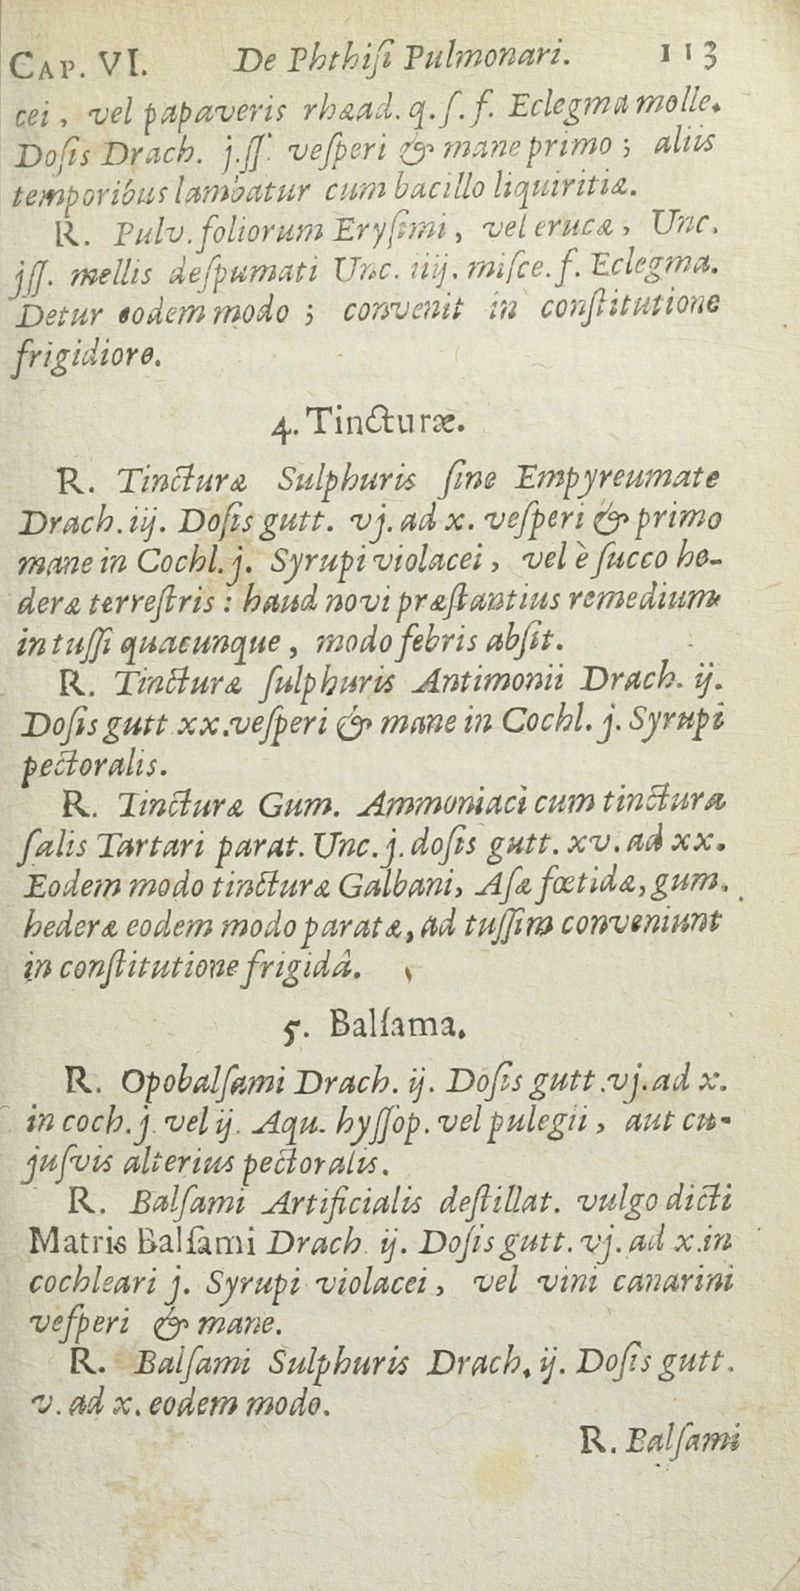 CAP. VI. De Phthiſi Pulmonari. 113
cei, vel papaveris rhæad. q. ſ. f. Eclegma molle.
Doſis Drach. j.ſſ. veſperi & mane primo; aliis
temporibus lambatur cum bacillo liquiritiæ.
R. Pulv. foliorum Eryſimi, vel erucæ, Unc.
jſſ. mellis deſpumati Unc. iiij. miſce. f. Eclegma.
Detur eodem modo; convenit in conſtitutione
frigidiore.
4. Tincturæ.
R. Tincturæ Sulphuris ſine Empyreumate
Drach. iij. Doſis gutt. vj. ad x. veſperi & primo
mane in Cochl. j. Syrupi violacei, vel è ſucco he-
deræ terreſtris: haud novi præſtantius remedium
in tuſſi quacunque, modo febris abſit.
R. Tincturæ ſulphuris Antimonii Drach. ij.
Doſis gutt xx. veſperi & mane in Cochl. j. Syrupi
pectoralis.
R. Tincturæ Gum. Ammoniaci cum tinctura
ſalis Tartari parat. Unc. j. doſis gutt. xv. ad xx.
Eodem modo tincturæ Galbani, Aſæ fœtidæ, gum.
hederæ eodem modo paratæ, ad tuſſim conveniunt
in conſtitutione frigidâ.
5. Balſama.
R. Opobalſami Drach. ij. Doſis gutt. vj. ad x.
in coch. j vel ij. Aqu. hyſſop. vel pulegii, aut cu-
juſvis alterius pectoralis.
R. Balſami Artificialis deſtillat. vulgo dicti
Matris Balſami Drach ij. Doſis gutt. vj. ad x. in
cochleari j. Syrupi violacei, vel vini canarini
veſperi & mane.
R. Balſami Sulphuris Drach. ij. Doſis gutt.
v. ad x. eodem modo.
R. Balſami